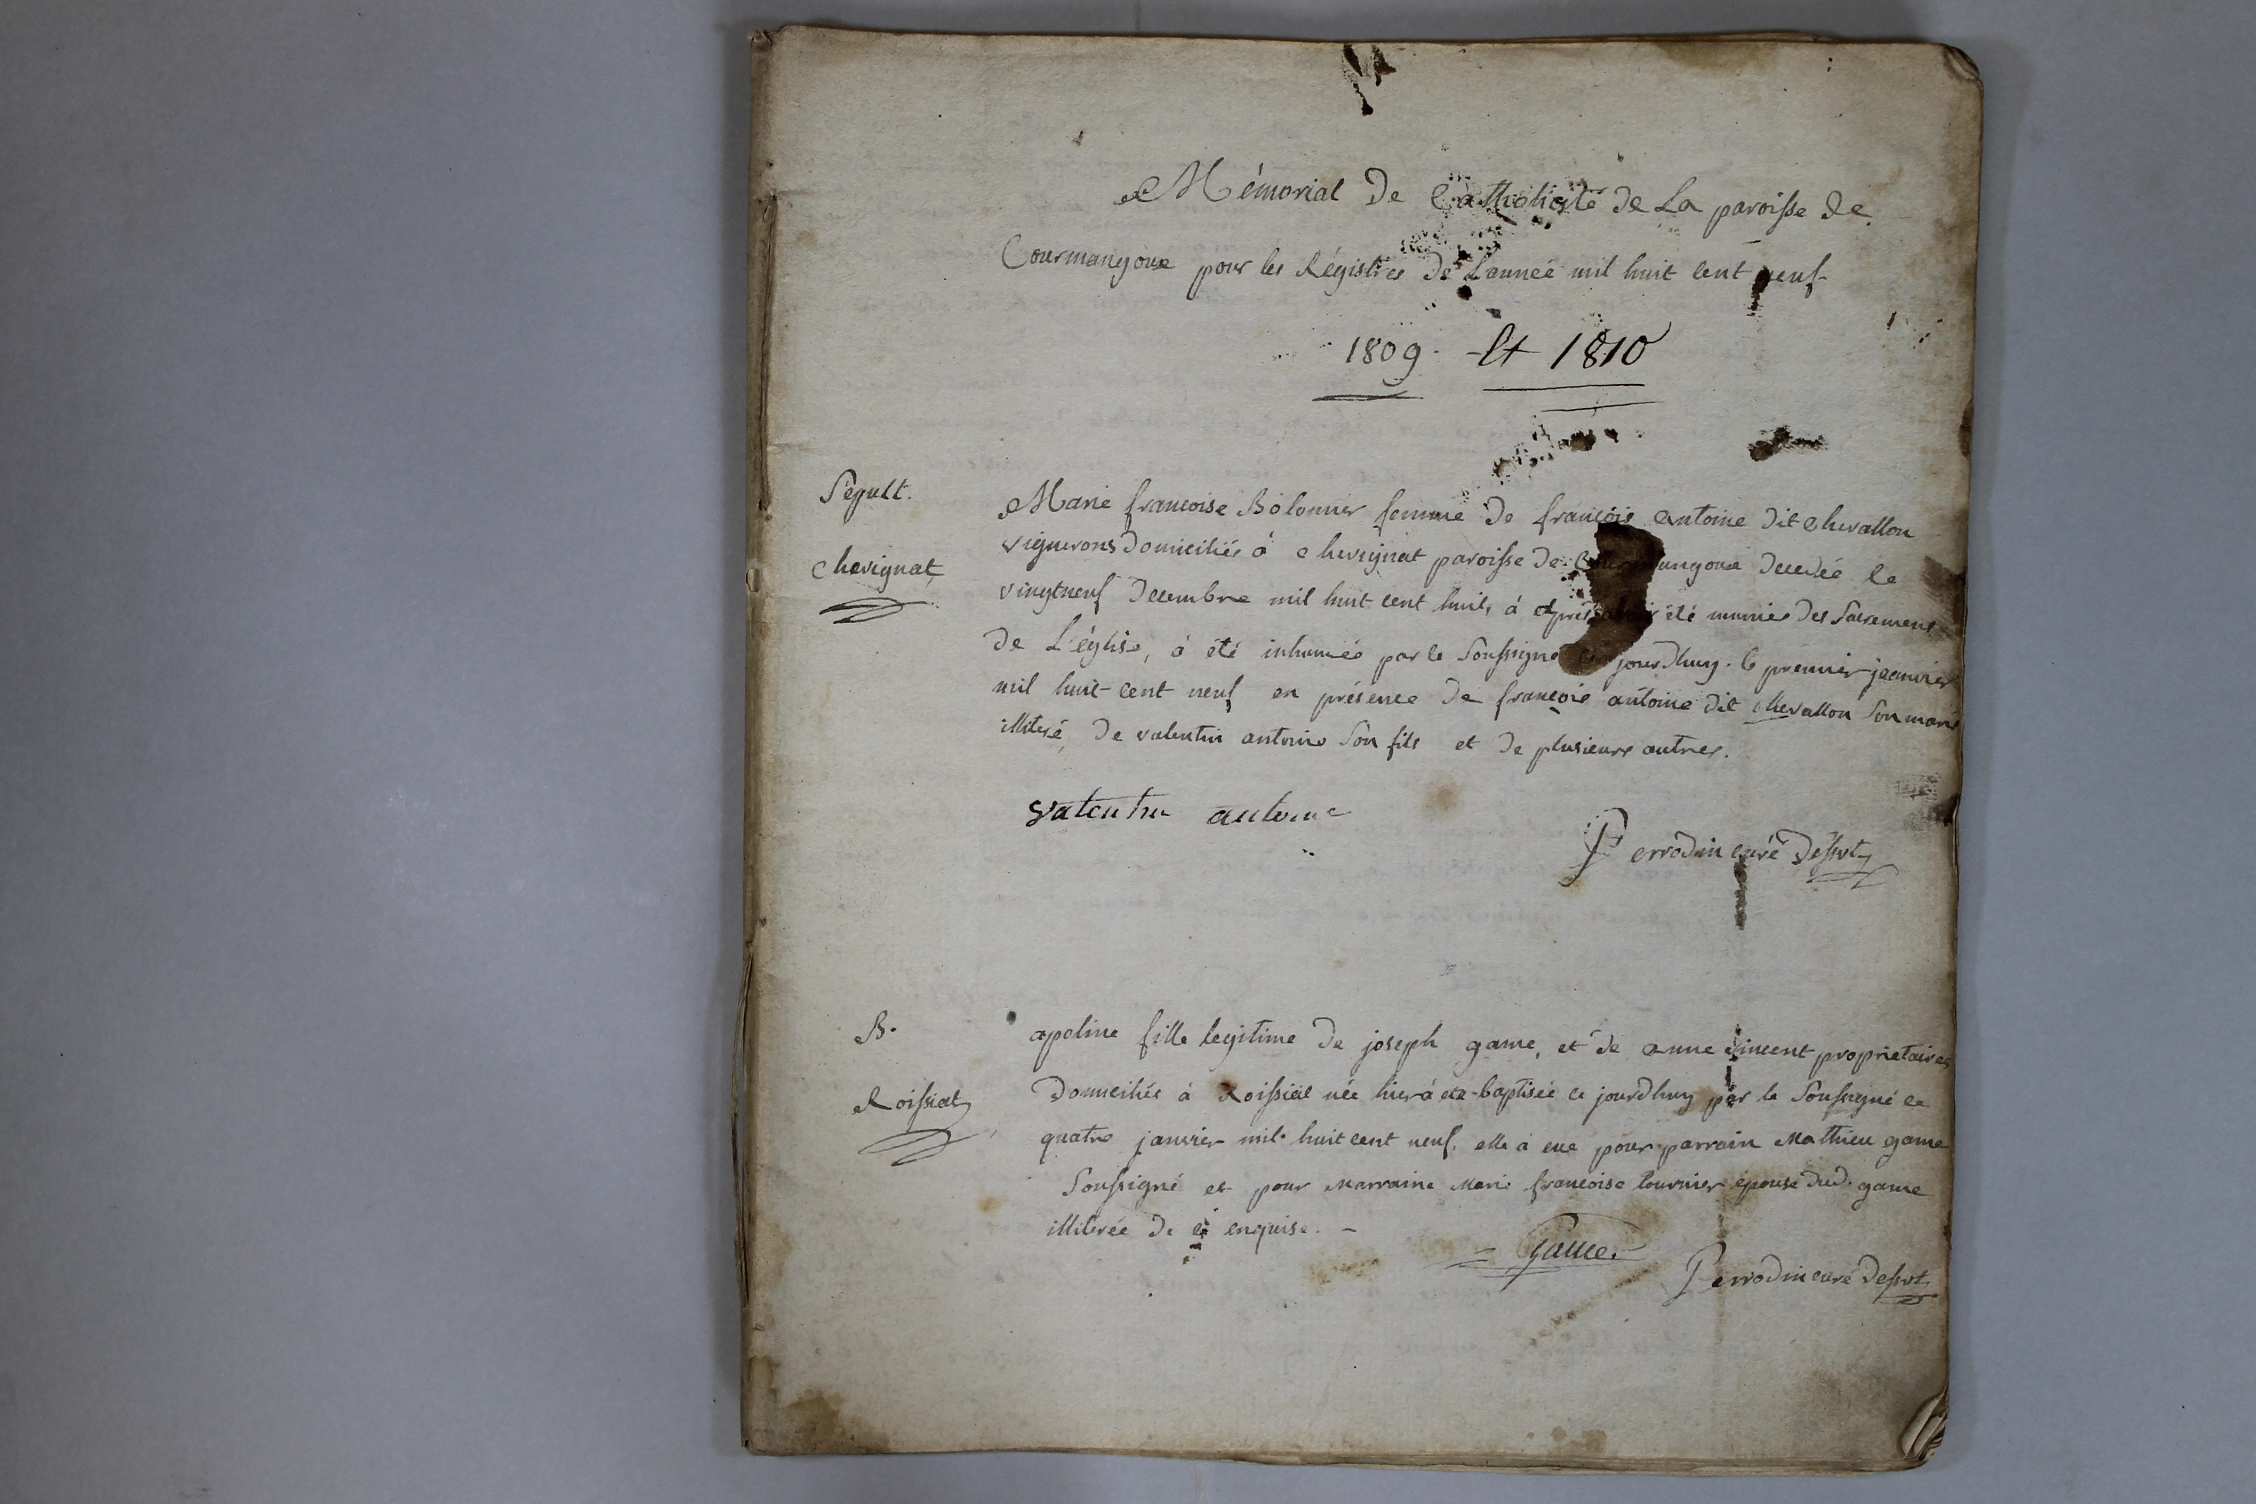 Mémorial De Catholicité de La paroisse de
Courmangoux pour les Régistres De L'année mil huit cent neuf
1809. et 1810
Sépult.
Chevignat
Marie françoise Bolomier femme De françois antoine dit Chevallon
vignerons Domiciliés à Chevignat paroisse De Courmangoux décédée le
vingtneuf Decembre mil huit cent huit, à après avoir été munie des Sacremens
de L'église, à été inhumée par le Soussigné ce jourdhuy. le premier janvier
mil huit cent neuf en présence de françois antoine dit chevallon Son mari
illiteré, De valentin antoine Son fils et de plusieurs autres.
valentin antoine
Perrodin curé Dessvt
B.
Roissiat
apoline fille legitime De joseph game, et de anne vincent proprietaires
Domiciliés à Roissiat née hier à eté baptisée ce jourdhuy par le Soussigné le
quatre janvier mil huit cent neuf, elle à eue pour parrain Mathieu game
Soussigné et pour Marraine Marie francoise tournier épouse dud. game
illiterée De ce enquise. -
Game.
Perrodin curé Dessvt